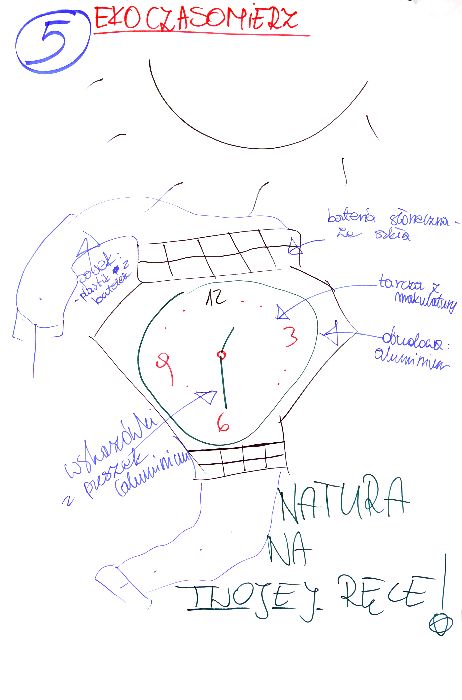 5 EKOCZASOMIERZ
bateria słoneczna -
ze szkła
pasek:
- plastik z
butelek
12
tarcza z
makulatury
3
obudowa:
aluminium
9
6
wskazówki
z puszek
(aluminium)
NATURA
NA
TWOJEJ RĘCE!